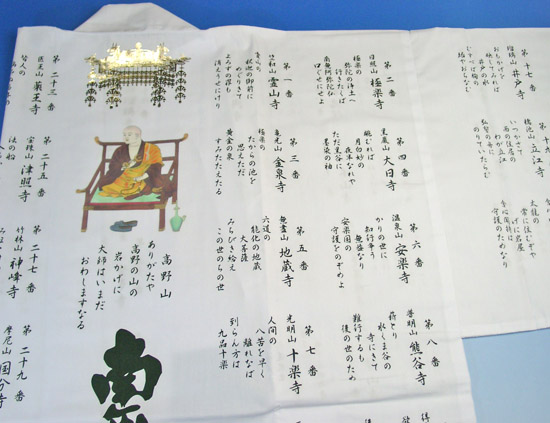 第十七番
瑠璃山 井戸寺
おもかげを
映しみれば
井戸の水
むすべば胸の
垢やおちなむ
立江寺
いつかさて
西の住居の
わが立江
弘誓の舟に
のりていたらむ
太龍の
常に住むぞや
げに岩屋
第二番
日照山 極楽寺
極楽の
弥陀の浄土へ
行きたくば
南無阿弥陀
口ぐせにせよ
第四番
黒巌山 大日寺
眺むれば
月白妙の
夜半なれや
ただ黒谷に
墨染の袖
第六番
温泉山 安楽寺
かりの世に
知行争う
無益なり
安楽国の
守護をのぞめよ
第八番
普明山 熊谷寺
薪とり
水くま谷の
寺にきて
難行するも
後の世のため
第一番
竺和山 霊山寺
霊山の
釈迦の御前に
めぐりきて
よろずの罪も
消えうせにけり
第三番
亀光山 金泉寺
極楽の
たからの池を
思えただ
黄金の泉
すみたたえたる
第五番
無尽山 地蔵寺
六道の
能化の地蔵
大菩薩
みちびき給え
この世のちの世
第七番
光明山 十楽寺
人間の
八苦を早く
離れなば
到らん方は
九品十楽
高野山
ありがたや
高野の山の
岩かげに
大師はいまだ
おわしますなる
南無
第二十三番
医王山 薬王寺
皆人の
第二十五番
宝珠山 津照寺
法の船
第二十七番
竹林山 神峰寺
第二十九番
摩尼山 国分寺